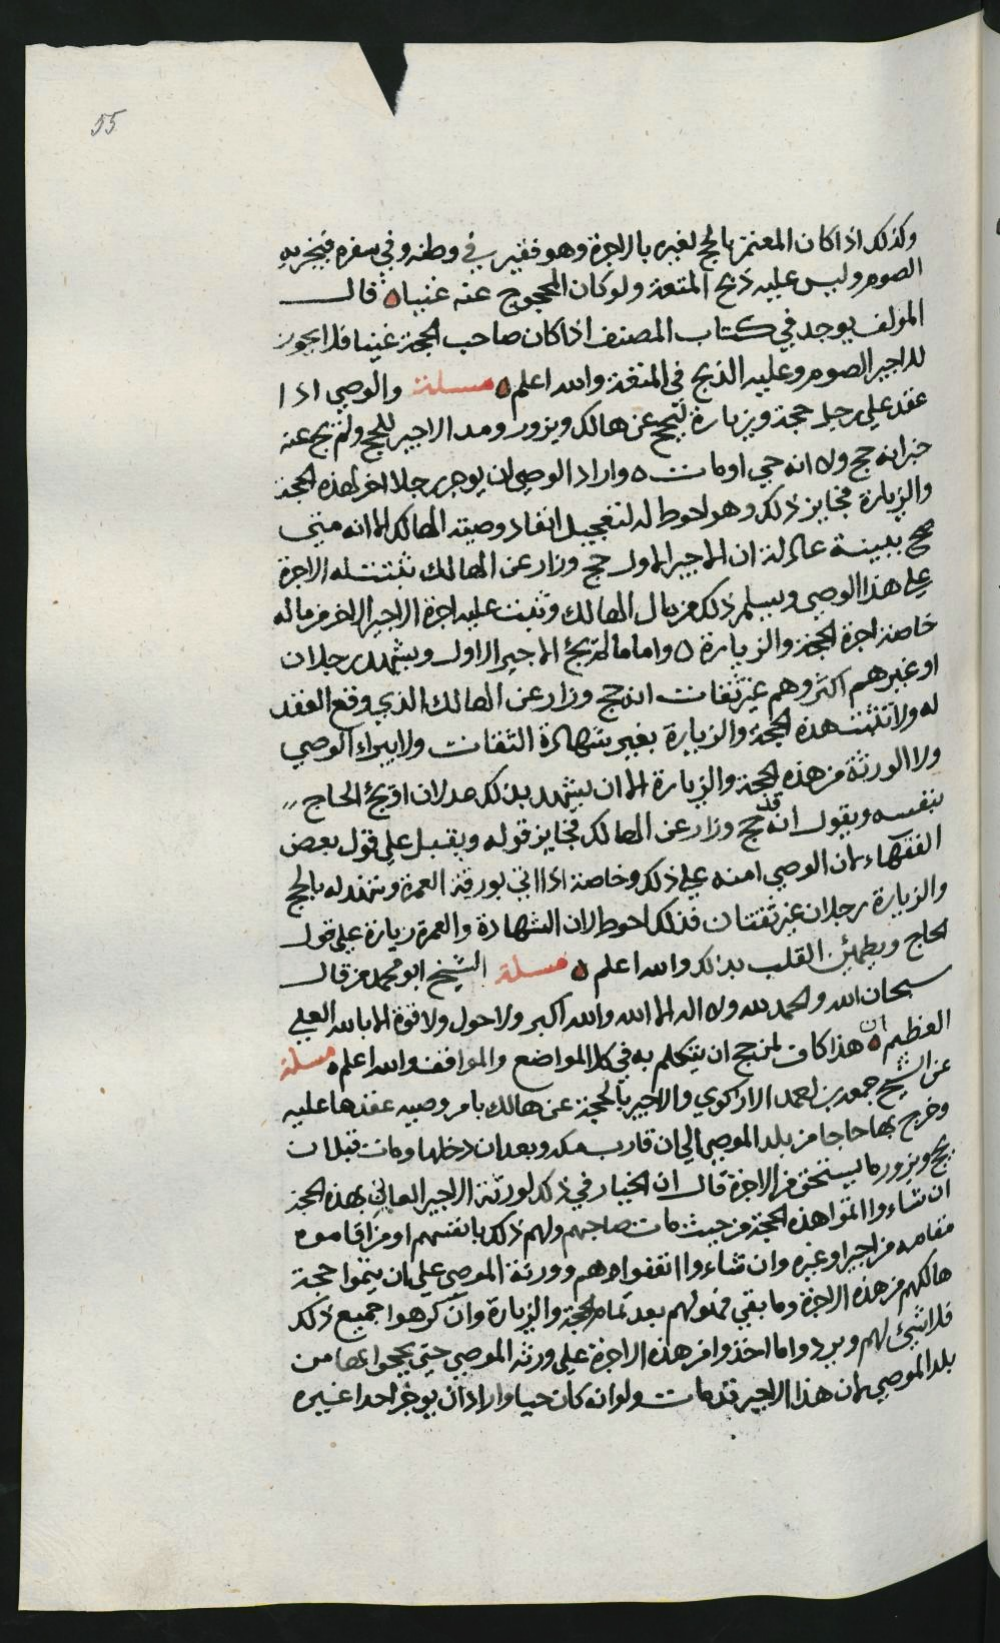 55
وكذلك اذا كان المعتمر بالحج لغيره بالاجرة وهو فقير في وطنه وفي سفره فيجزيه
الصوم وليس عليه ذبح المتعة ولو كان المحجوج عنه غنيا ه قالــ
المولف يوجد في كتاب المصنف اذا كان صاحب الحجة غنيا فلا يجوز
للاجير الصوم وعليه الذبح في المتعة والله اعلم ه مسلة والوصي اذا
عقد على رجل حجة وزيارة ليحج عن هالك ويزور ومد الاجير للحج ولم يج عنه
خبر انه حج ولا انه حي او مات ه واراد الوصي ان يوجر رجلا اخر لهذه الحجة
والزيارة فجايز ذلك وهو احوط له لتعجيل انفاد وصية الهالك الا انه متى
صح ببينة عادلة ان الاجير الاول حج وزار عن الهالك ثبتت له الاجرة
على هذا الوصي ويسلم ذلك من مال الهالك وثبت عليه اجرة الاجير الاخر من ماله
خاصة اجرة الحجة والزيارة ه واما ما لم يج الاجير الاول ويشهد رجلان
او غيرهم اكثر وهم غير ثقات انه حج وزار عن الهالك الذي وقع العقد
له ولا تثبت هذه الحجة والزيارة بغير شهادة الثقات ولا يبراء الوصي
ولا الورثة من هذه الحجة والزيارة الا ان يشهد بذلك عدلان او يج الحاج
بنفسه ويقول انه قد حج وزار عن الهالك فجايز قوله ويقبل على قول بعض
الفقهاء لان الوصي امنه على ذلك وخاصة اذا اتى بورقة العمرة وشهد له بالحج
والزيارة رجلان غير ثقتان فذلك احوط لان الشهادة والعمرة زيارة على قول
الحاج ويطمئن القلب بذلك والله اعلم ه مسلة الشيخ ابو محمد من قال
سبحان الله والحمد لله ولا اله الا الله والله اكبر ولا حول ولا قوة الا بالله العلي
العظيم ه ان هذا كاف لمن حج ان يتكلم به في كل المواضع والمواقف والله اعلم ه مسلة
عن الشيخ جمعه بن احمد الازكوي والاجير بالحجة عن هالك بامر وصيه عقدها عليه
وخرج بها حاجا من بلد الموصي الى ان قارب مكه وبعد ان دخلها ومات قبل ان
يحج ويزور ما يستحق من الاجرة قال ان الخيار في ذلك لورثة الاجير الـ بهذه الحجة
ان شاءوا اتموا هذه الحجة من حيث مات صاحبهم ولهم ذلك بانفسهم او من اقاموه
مقامه من اجير او غيره وان شاءوا اتفقوا هم وورثة الموصي على ان يتموا حجة
هالكهم من هذه الاجرة وما بقي فهو لهم بعد تمام الحجة والزيارة وان كرهوا جميع ذلك
فلا شئ لهم ويردوا ما اخذوا من هذه الاجرة على ورثة الموصي حتى يحجوا بها من
بلد الموصي لان هذا الاجير قد مات ولو انه كان حيا واراد ان يوجر احدا غيره